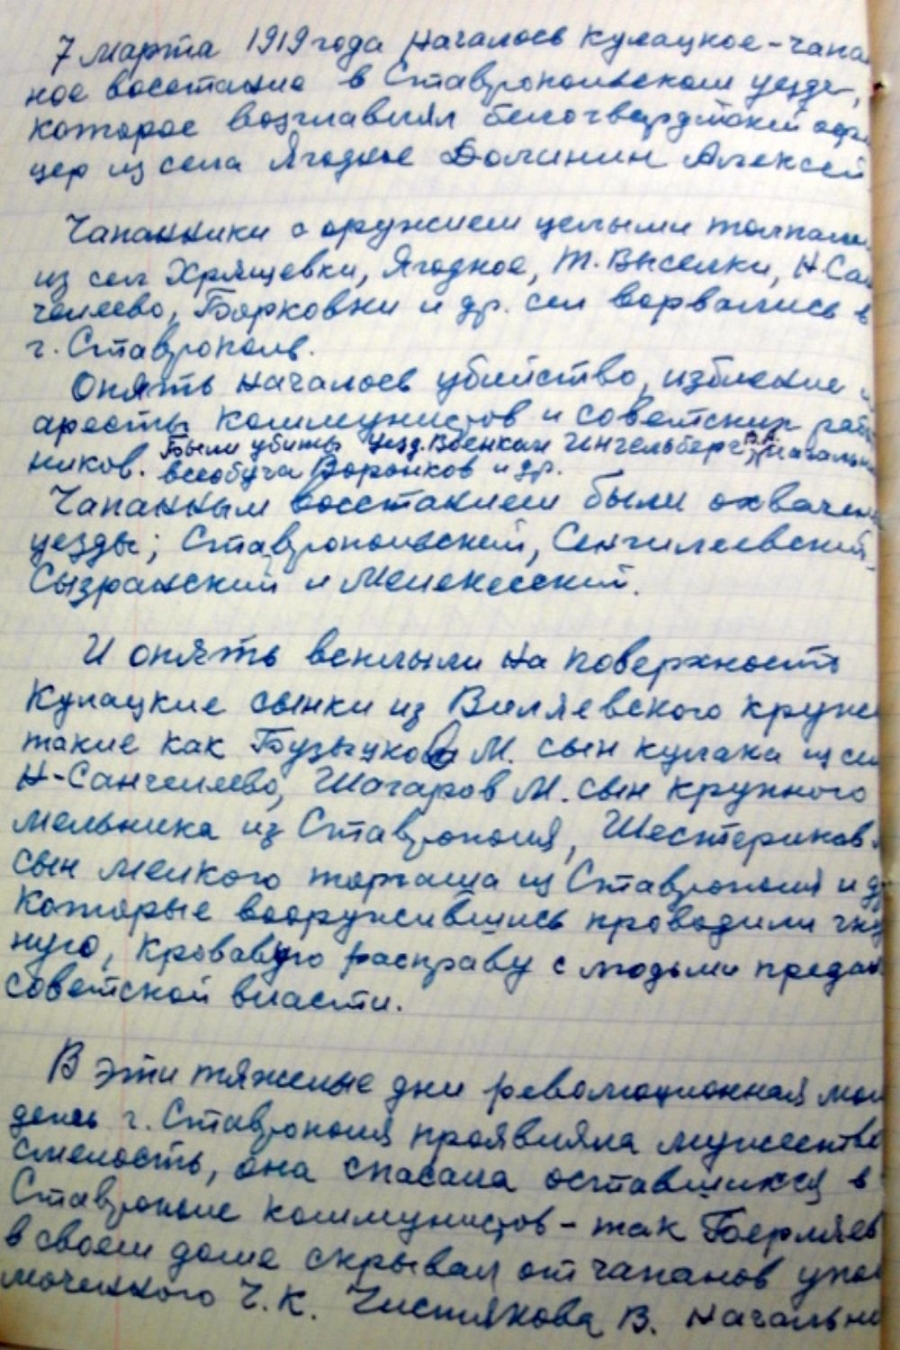 7 марта 1919 года началось кулацкое-чапа
ное восстание в Ставропольском уезде,
которое возглавлял белогвардейский офи
цер из села Ягодное Долинин Алексей
Чапанники с оружием целыми толпами
из сел Хрящевки, Ягодное, Т. Выселки, Н-Сан
челеево, Борковки и др. сел ворвались в
г. Ставрополь.
Опять началось убийство, избиение и
аресты коммунистов и советских рабо
ников. Были убиты уезд. Военком Ингельберг В.А., начальни
всеобуча Воронков и др.
Чапанным восстанием были охвачены
уезды; Ставропольский, Сенгилеевский,
Сызранский и Мелекесский.
И опять всплыли на поверхность
кулацкие сынки из Виляевского круж
такие как Бузыцков М. сын кулака из се
Н-Санчелеево, Шагаров М. сын крупного
мельника из Ставрополя, Шестериков
сын мелкого торгаша из Ставрополя и др
которые вооружившись проводили гну
ную, кровавую расправу с людьми предан
советской власти.
В эти тяжелые дни революционная мол
дежь г. Ставрополя проявляла мужество
смелость, она спасала оставшихся в
Ставрополе коммунистов - так Бермяев
в своем доме скрывал от чапанов упол
моченного Ч.К. Чистякова В. Начальни